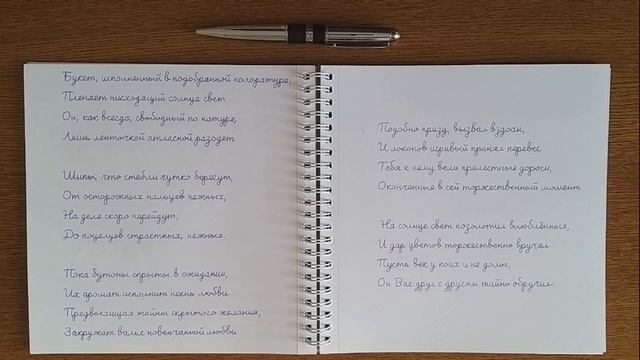 Букет, исполненный в подобранной колоратуре,
Пленяет нисходящий солнца свет
Он, как всегда, свободный по натуре,
Лишь ленточкой атласной разодет
Шипы, что стебли чутко берегут,
От осторожных пальцев нежных,
На деле скоро перейдут,
До поцелуев страстных, нежных.
Пока бутоны скрыты в ожидании,
Их аромат исполнит песнь любви
Предвосхищая тайны скрытого желания,
Закружат вальс новенчанной любви
Подобно призу, вызвал вздохи,
И локонов игривый принял перевес
Тебя к нему вели прелестные дороги,
Оконченные в сей торжественный момент
На солнце свет позолотил влюблённых,
И дар цветов торжественно вручил
Пусть век у коих и не долог,
Он Вас друг с другом тайно обручил